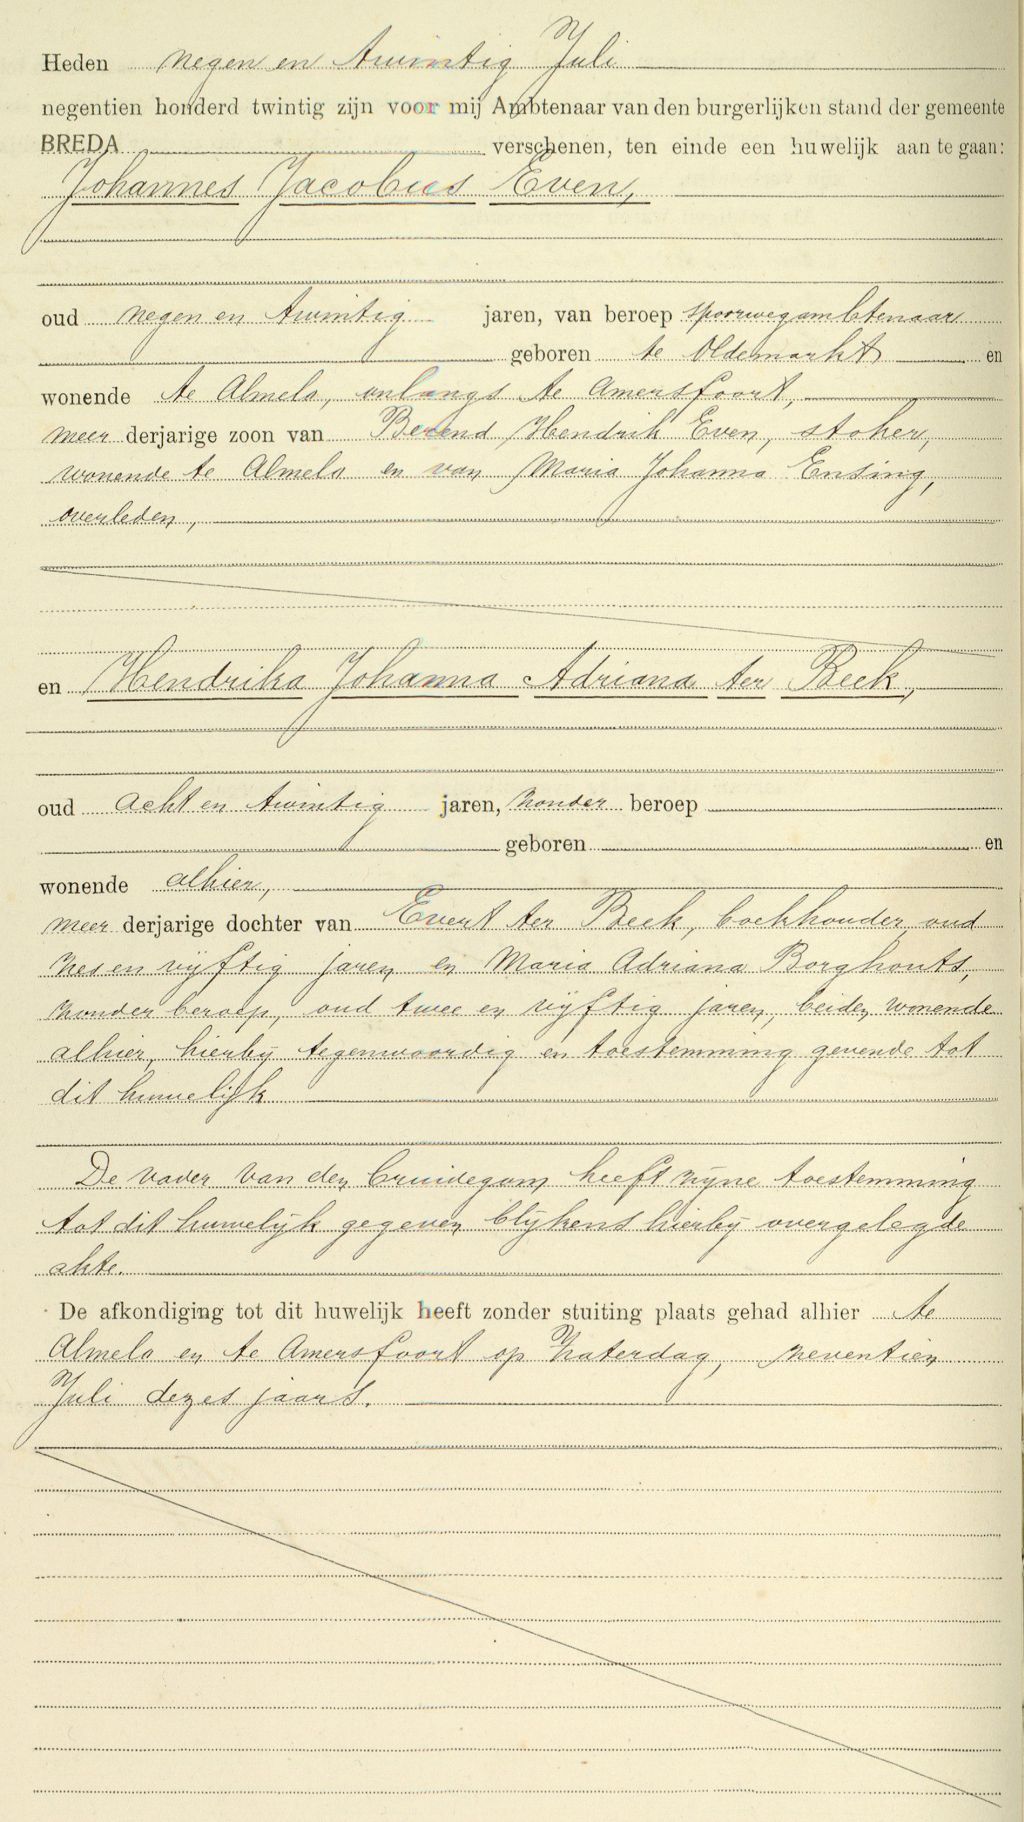 Heden negen en twintig Juli
negentien honderd twintig zijn voor mij Ambtenaar van den burgerlijken stand der gemeente
BREDA verschenen, ten einde een huwelijk aan te gaan:
Johannes Jacobus Even,
oud negen en twintig jaren, van beroep spoorwegambtenaar
geboren te Oldemarkt en
wonende te Almelo, onlangs te Amersfoort,
meer derjarige zoon van Berend Hendrik Even, stoker,
wonende te Almelo en van Maria Johanna Ensing,
overleden,
en Hendrika Johanna Adriana ter Beek,
oud acht en twintig jaren, zonder beroep
geboren en
wonende alhier,
meer derjarige dochter van Evert ter Beek, boekhouder, oud
zes en vijftig jaren en Maria Adriana Borghouts,
zonder beroep, oud twee en vijftig jaren, beiden wonende
alhier, hierbij tegenwoordig en toestemming gevende tot
dit huwelijk
De vader van den bruidegom heeft zijne toestemming
tot dit huwelijk gegeven blijkens hierbij overgelegde
akte.
De afkondiging tot dit huwelijk heeft zonder stuiting plaats gehad alhier te
Almelo en te Amersfoort op Zaterdag, zeventien
Juli dezes jaars.